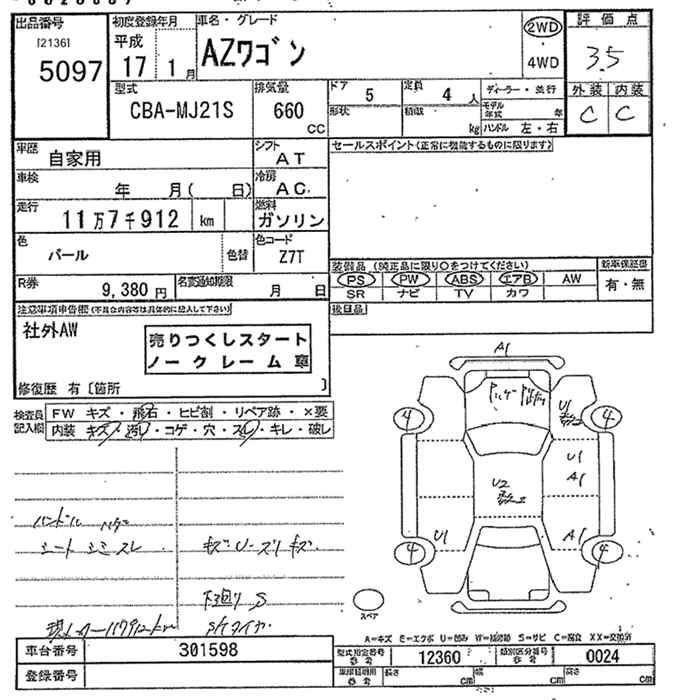 出品番号
[2136]
5097
初度登録年月
平成
17年1月
車名・グレード
AZワゴン
2WD
4WD
評価点
3.5
外装 内装
C C
型式
CBA-MJ21S
排気量
660
CC
ドア
5
定員
4人
形状
積載
kg
ディーラー・並行
モデル年式
年
ハンドル 左・右
車歴
自家用
シフト
AT
車検
年 月( 日)
冷房
AC
走行
11万7千912 km
燃料
ガソリン
色
パール
色替
色コード
Z7T
R券
9,380円
名変通知期限
月 日
セールスポイント(正常に機能するものに限ります)
装備品 (純正品に限り○をつけてください)
PS PW ABS エアB AW
SR ナビ TV カワ
新車保証書
有・無
後日品
注意事項申告欄(不具合内容等は具体的に記入して下さい)
社外AW
売りつくしスタート
ノークレーム車
修復歴 有〔箇所 〕
検査員記入欄
FW キズ・飛石・ヒビ割・リペア跡・×要
内装 キズ・汚れ・コゲ・穴・スレ・キレ・破レ
ハンドル
シート シミ スレ
キズ・U・スリキズ
下廻り S
A1
U1
4
4
U1
A1
U2
U1
A1
4
4
スペア
A=キズ E=エクボ U=凹み W=補修跡 S=サビ C=腐食 XX=交換済
車台番号
301598
登録番号
型式指定番号
参考
12360
類別区分番号
参考
0024
長さ
cm
幅
cm
高さ
cm